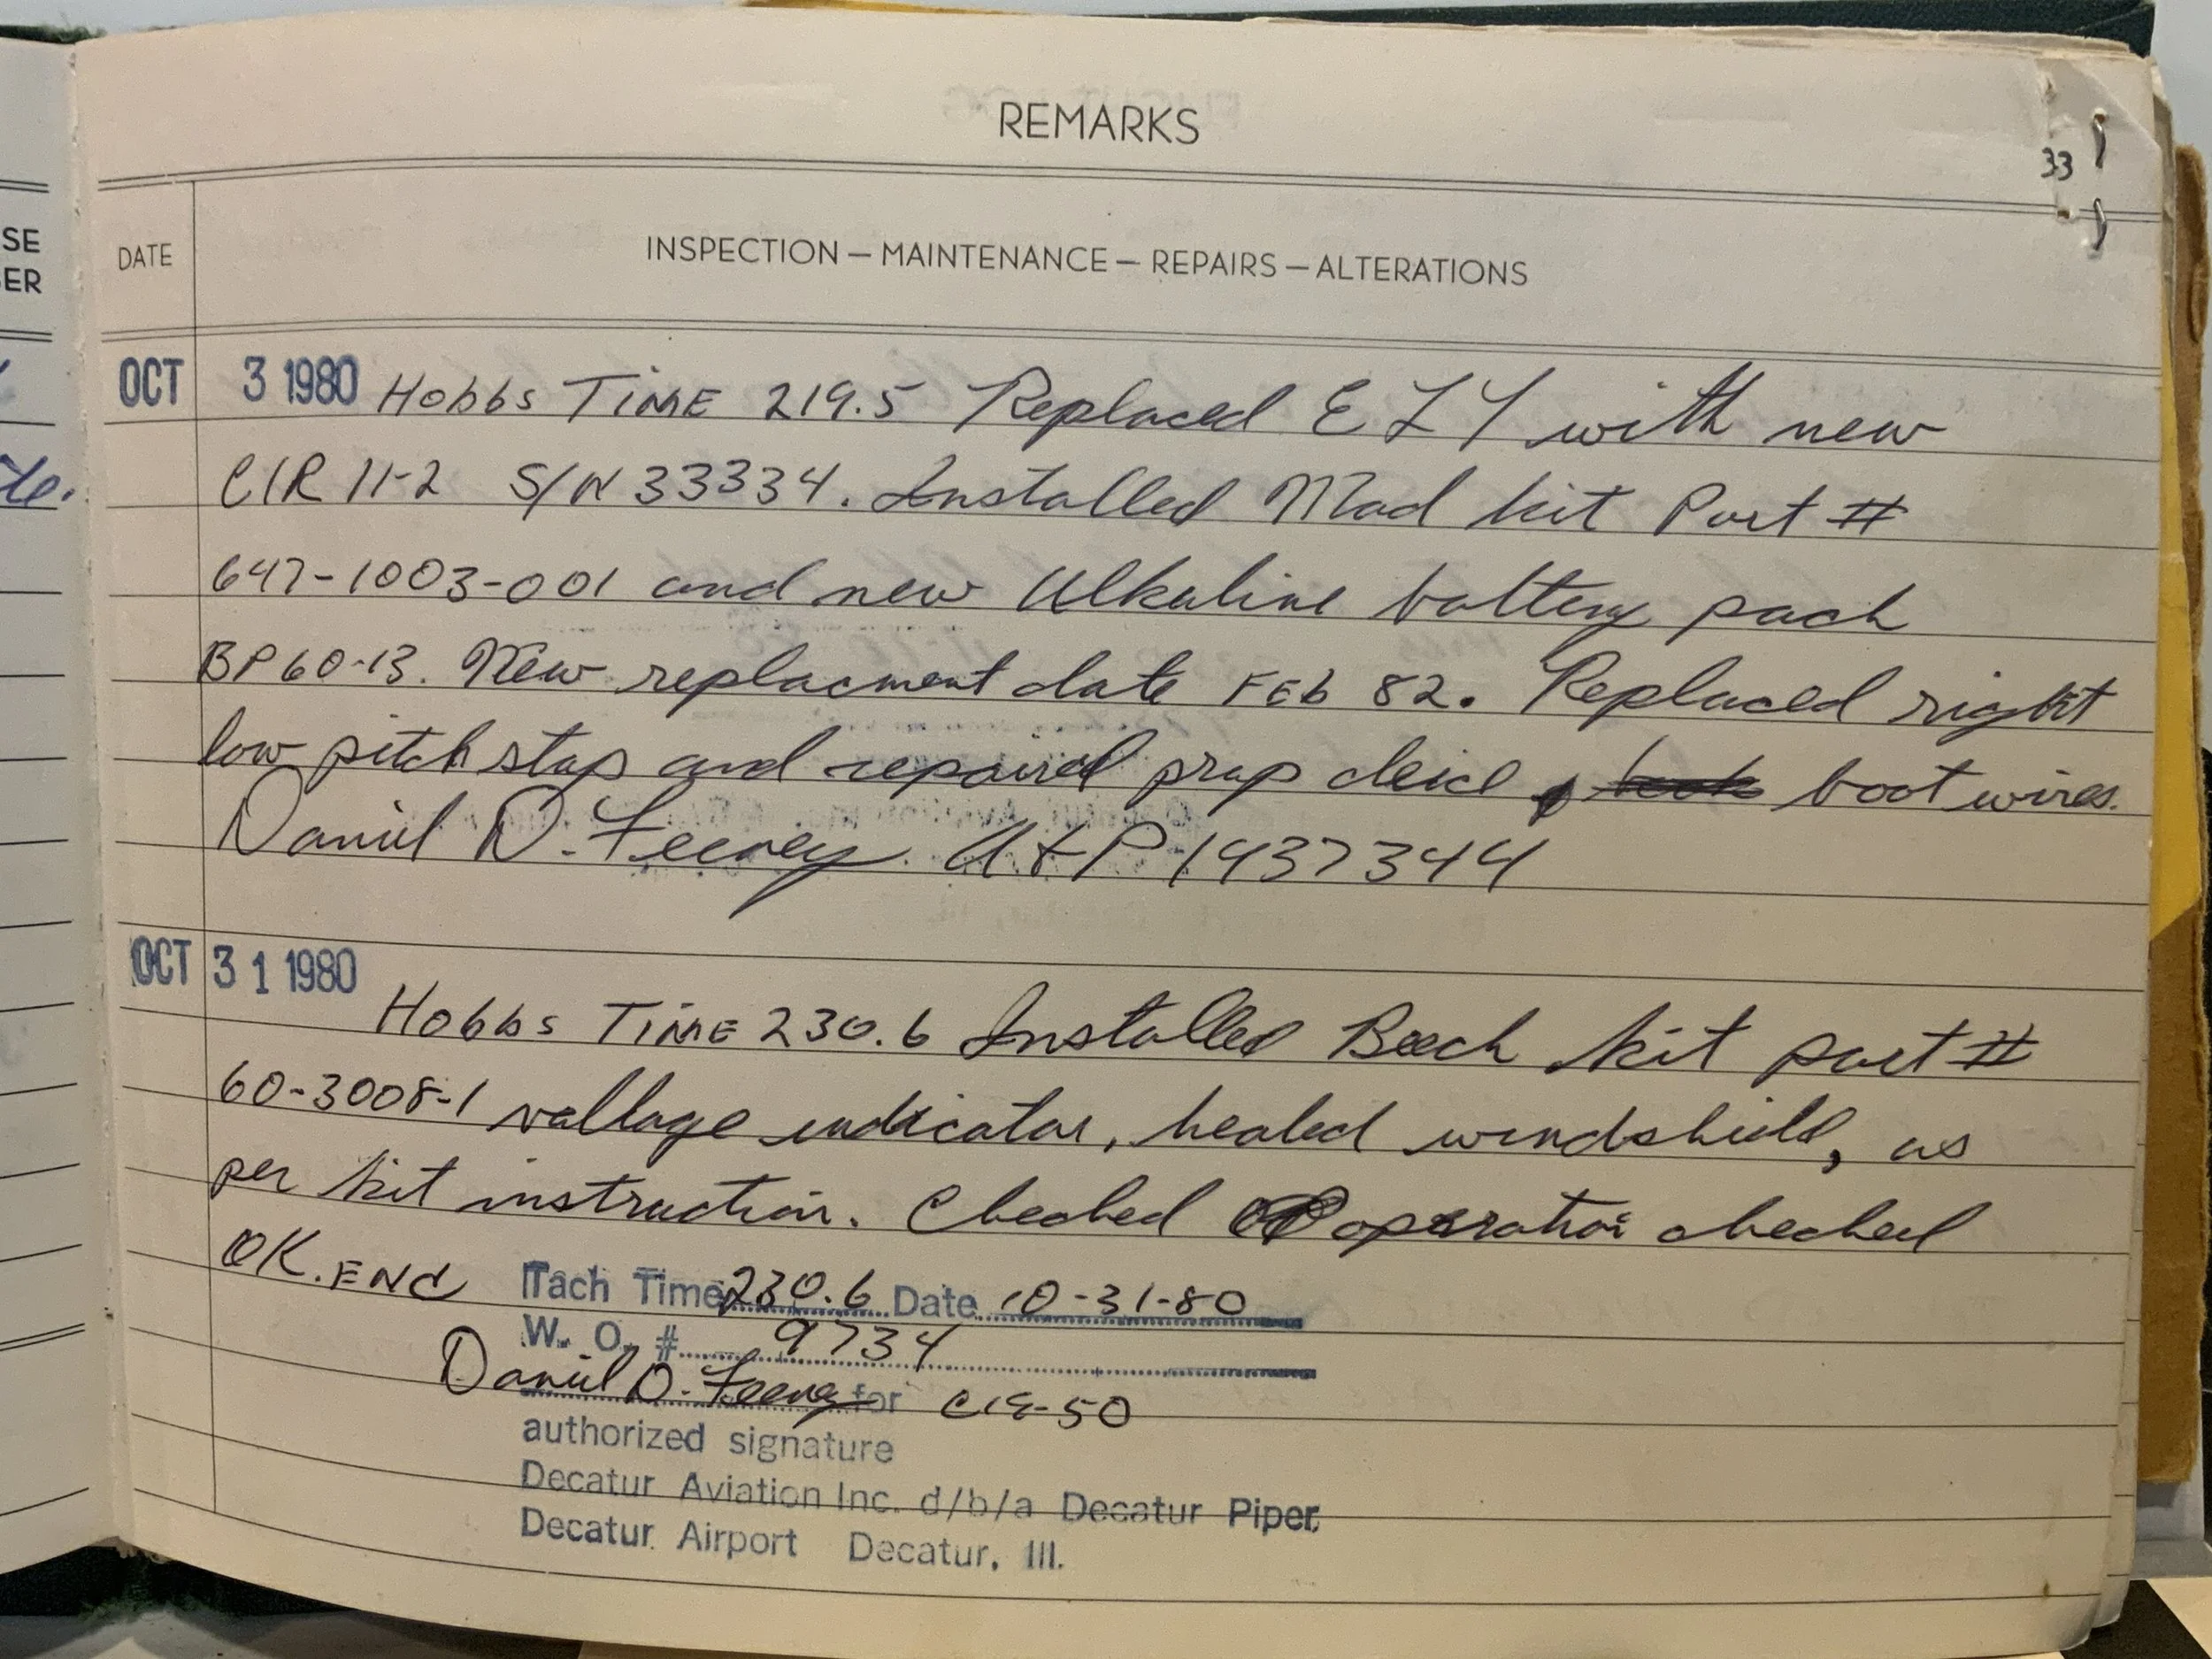 REMARKS
33
SE
ER
DATE
INSPECTION — MAINTENANCE — REPAIRS — ALTERATIONS
OCT 3 1980 Hobbs TiME 219.5 Replaced ELT with new
CIR 11-2 S/N 33334. Installed Mod kit Part #
647-1003-001 and new Alkaline battery pack
BP60-13. New replacment date FEb 82. Replaced right
low pitch stop and repaired prop deice boot wires.
Daniel D. Feeney A+P 1437344
OCT 31 1980
Hobbs TiME 230.6 Installed Beech kit part #
60-3008-1 voltage indicator, heated windshield, as
per kit instruction. Checked operation checked
OK. ENd Tach Time 230.6 Date 10-31-80
W. O. # 9734
Daniel D. Feeney for
authorized signature
Decatur Aviation Inc. d/b/a Decatur Piper
Decatur Airport Decatur, Ill.